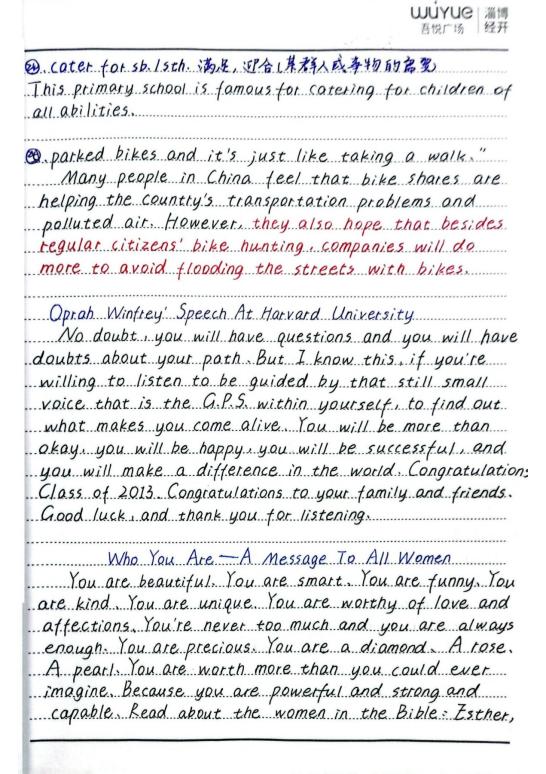 wuyue
吾悦广场
淄博
经开
㉔. cater for sb./sth. 满足,迎合(某群人或事物的需要
This primary school is famous for catering for children of
all abilities.
parked bikes and it's just like taking a walk."
Many people in China feel that bike shares are
helping the country's transportation problems and
polluted air. However, they also hope that besides
regular citizens' bike hunting, companies will do
more to avoid flooding the streets with bikes.
Oprah Winfrey' Speech At Harvard University
No doubt, you will have questions and you will have
doubts about your path. But I know this, if you're
willing to listen to be guided by that still small
voice that is the G.P.S. within yourself, to find out
what makes you come alive. You will be more than
okay, you will be happy, you will be successful, and
you will make a difference in the world. Congratulations
Class of 2013. Congratulations to your family and friends.
Good luck, and thank you for listening.
Who You Are—A Message To All Women
You are beautiful. You are smart. You are funny. You
are kind. You are unique. You are worthy of love and
affections. You're never too much and you are always
enough. You are precious. You are a diamond. A rose.
A pearl. You are worth more than you could ever
imagine. Because you are powerful and strong and
capable. Read about the women in the Bible: Esther,